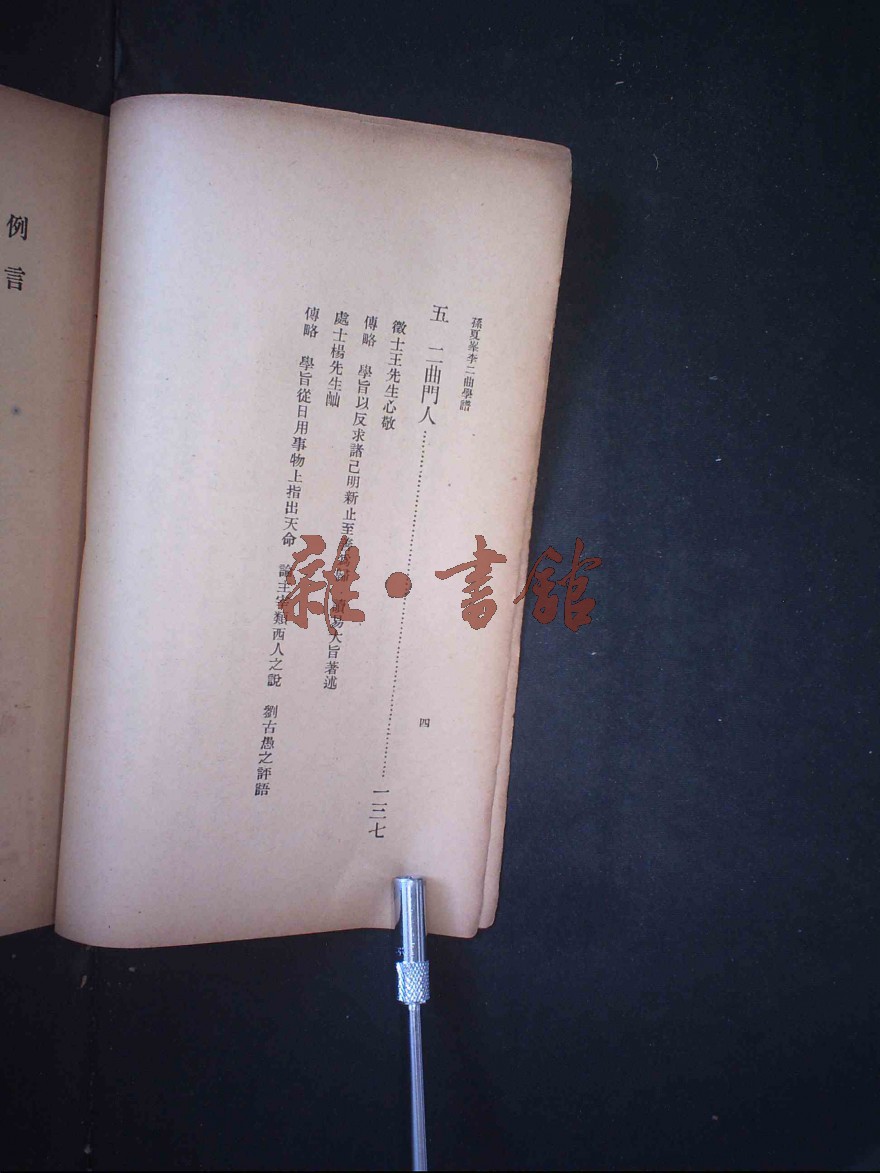 孫夏峯李二曲學譜
四
五　二曲門人……一三七
徵士王先生心敬
傳略　學旨以反求諸己明新止至大旨著述
處士楊先生屾
傳略　學旨從日用事物上指出天命　論主宰類西人之說　劉古愚之評語
例言
雜·書館